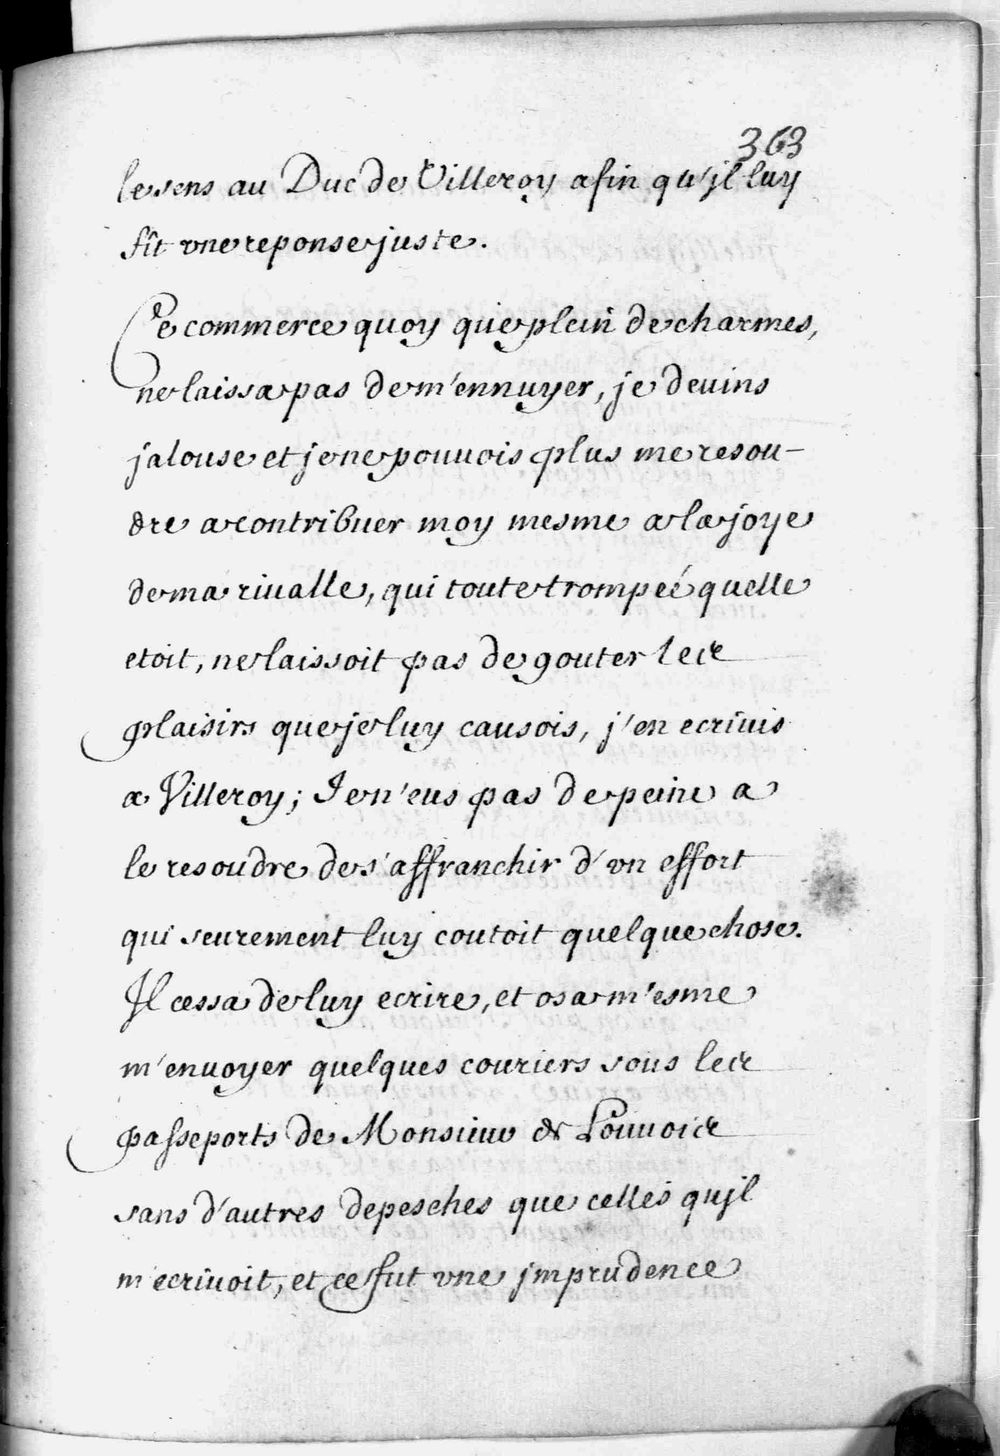 363
le sens au Duc de Villeroy afin qu'jl luy
fît vne reponse juste.
Ce commerce quoy que plein de charmes,
ne laissa pas de m'ennuyer, je deuins
jalouse et je ne pouuois plus me resou-
dre a contribuer moy mesme a la joye
de ma riualle, qui toute trompeé quelle
etoit, ne laissoit pas de gouter les
plaisirs que je luy causois, j'en ecriuis
a Villeroy; Je n'eus pas de peine a
le resoudre de s'affranchir d'vn effort
qui seurement luy coutoit quelque chose.
Il cessa de luy ecrire, et osa m'esme
m'enuoyer quelques couriers sous les
passeports de Monsieur de Louuois
sans d'autres depesches que celles qujl
m'ecriuoit, et ce fut vne jmprudence